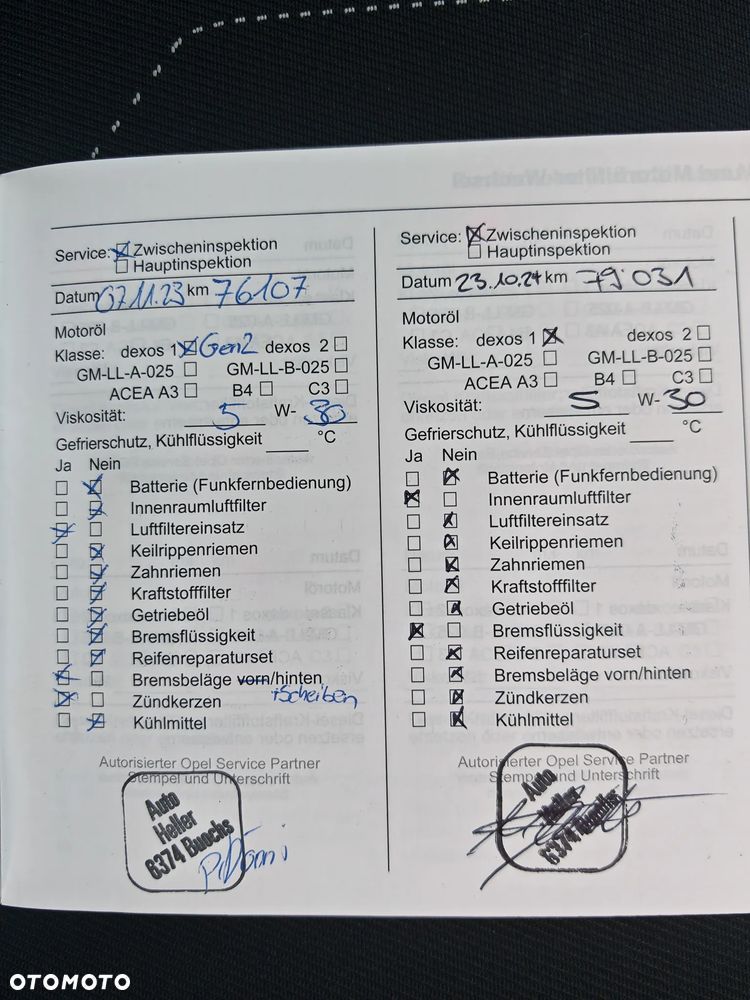 Service: ☒ Zwischeninspektion
☐ Hauptinspektion
Datum 07.11.23 km 76107
Motoröl
Klasse: dexos 1 ☒ Gen2 dexos 2 ☐
GM-LL-A-025 ☐ GM-LL-B-025 ☐
ACEA A3 ☐ B4 ☐ C3 ☐
Viskosität: 5 W- 30
Gefrierschutz, Kühlflüssigkeit ____ °C
Ja Nein
☐ ☒ Batterie (Funkfernbedienung)
☐ ☒ Innenraumluftfilter
☒ ☐ Luftfiltereinsatz
☐ ☒ Keilrippenriemen
☐ ☒ Zahnriemen
☐ ☒ Kraftstofffilter
☐ ☒ Getriebeöl
☐ ☒ Bremsflüssigkeit
☐ ☒ Reifenreparaturset
☒ ☐ Bremsbeläge vorn/hinten
+Scheiben
☒ ☐ Zündkerzen
☐ ☒ Kühlmittel
Autorisierter Opel Service Partner
Stempel und Unterschrift
Auto
Heller
6374 Buochs
Service: ☒ Zwischeninspektion
☐ Hauptinspektion
Datum 23.10.24 km 79'031
Motoröl
Klasse: dexos 1 ☒ dexos 2 ☐
GM-LL-A-025 ☐ GM-LL-B-025 ☐
ACEA A3 ☐ B4 ☐ C3 ☐
Viskosität: 5 W- 30
Gefrierschutz, Kühlflüssigkeit ____ °C
Ja Nein
☐ ☒ Batterie (Funkfernbedienung)
☒ ☐ Innenraumluftfilter
☐ ☒ Luftfiltereinsatz
☐ ☒ Keilrippenriemen
☐ ☒ Zahnriemen
☐ ☒ Kraftstofffilter
☐ ☒ Getriebeöl
☒ ☐ Bremsflüssigkeit
☐ ☒ Reifenreparaturset
☐ ☒ Bremsbeläge vorn/hinten
☐ ☒ Zündkerzen
☐ ☒ Kühlmittel
Autorisierter Opel Service Partner
Stempel und Unterschrift
Auto
Heller
6374 Buochs
OTOMOTO